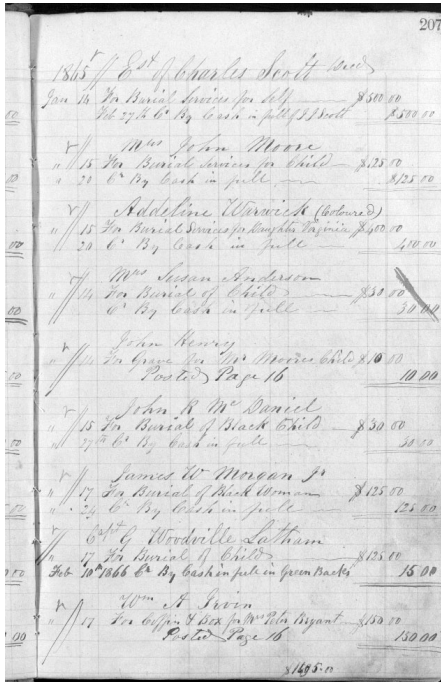 207
1865 Est of Charles Scott Decd
Jan 14 For Burial Services for Self $500 00
Feb 27th Cr By Cash in full of J J Scott $500 00
Mrs John Moore
" 15 For Burial Services for Child $125 00
" 20 Cr By Cash in full $125 00
Addeline Warwick (Coloured)
" 15 For Burial Services for Daughter Virginia $400 00
20 Cr By Cash in full 400 00
Mrs Susan Anderson
" 14 For Burial of Child $30 00
Cr By Cash in full 30 00
John Henry
" 14 For Grave for Mr Moores Child $10 00
Posted Page 16 10 00
John R McDaniel
" 15 For Burial of Black Child $30 00
" 27th Cr By Cash in full 30 00
James W Morgan Jr
" 17 For Burial of Black Woman $125 00
" 24 Cr By Cash in full 125 00
Capt G Woodville Latham
" 17 For Burial of Child $125 00
Feb 10th 1866 Cr By Cash in full in Green Backs 15 00
Wm A Irvin
" 17 For Coffin & Box for Mrs Peter Bryant $150 00
Posted Page 16 150 00
$1695.00